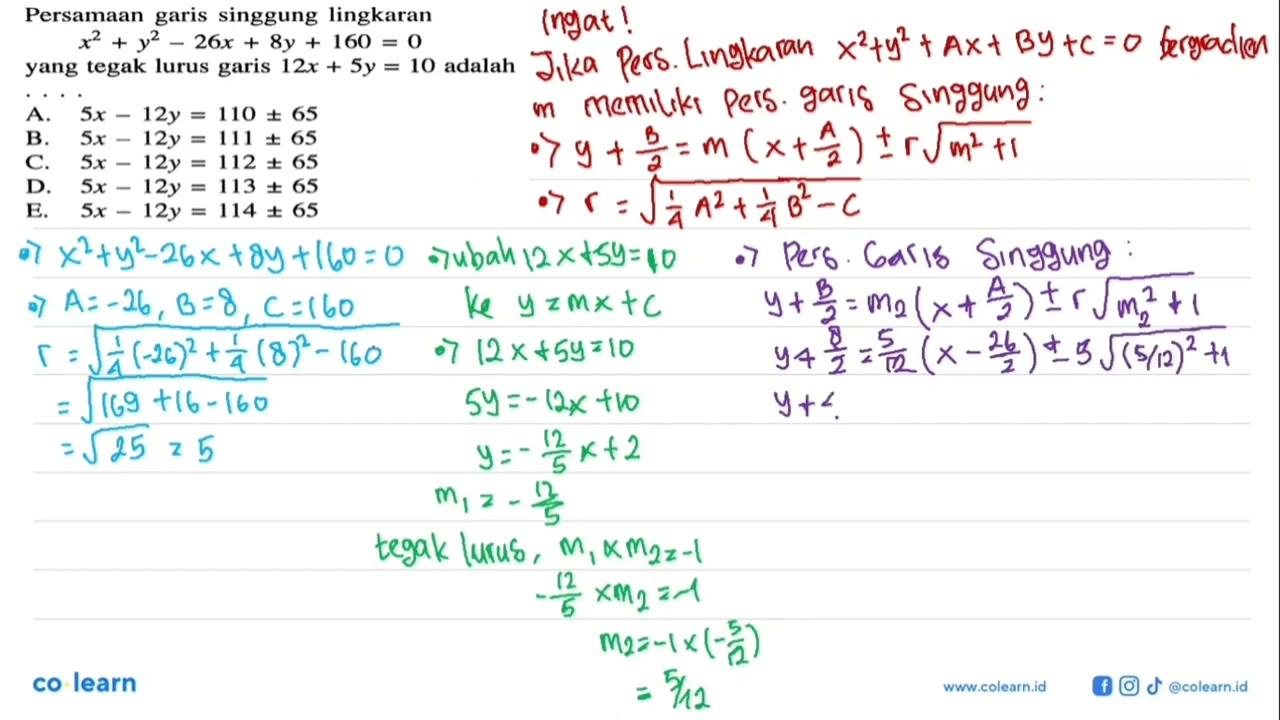 Persamaan garis singgung lingkaran
x² + y² − 26x + 8y + 160 = 0
yang tegak lurus garis 12x + 5y = 10 adalah
. . . .
A. 5x − 12y = 110 ± 65
B. 5x − 12y = 111 ± 65
C. 5x − 12y = 112 ± 65
D. 5x − 12y = 113 ± 65
E. 5x − 12y = 114 ± 65
Ingat!
Jika Pers. Lingkaran x²+y²+Ax+By+C=0 bergradien
m memiliki Pers. garis Singgung:
•> y + B/2 = m (x + A/2) ± r√(m²+1)
•> r = √(1/4 A² + 1/4 B² − C)
•> x²+y²−26x+8y+160=0
•> A=−26, B=8, C=160
r = √(1/4 (−26)² + 1/4 (8)² − 160)
= √(169+16−160)
= √25 = 5
•> ubah 12x+5y=10
ke y=mx+c
•> 12x+5y=10
5y=−12x+10
y=−12/5 x+2
m₁ = −12/5
tegak lurus, m₁×m₂=−1
−12/5 ×m₂=−1
m₂=−1×(−5/12)
= 5/12
•> Pers. Garis Singgung:
y + B/2 = m₂(x + A/2) ± r√(m₂²+1)
y+ 8/2 = 5/12 (x − 26/2) ± 5√((5/12)²+1)
y+4
co learn
www.colearn.id
@colearn.id